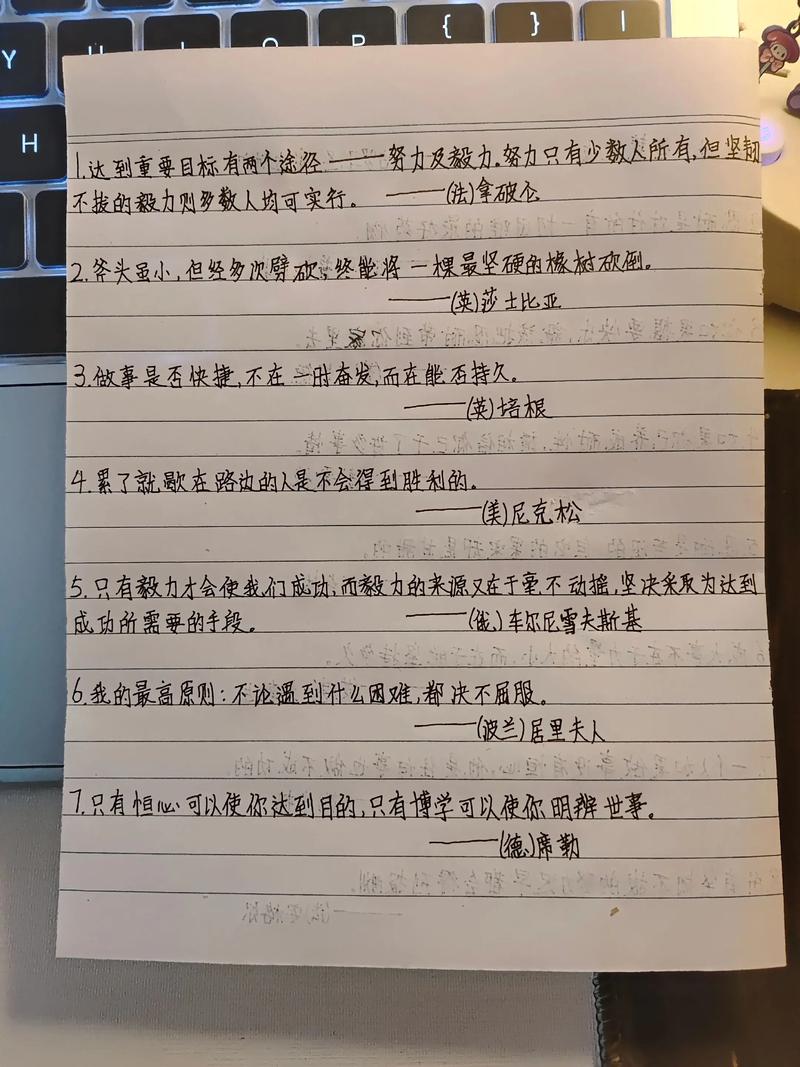 Y U I O P { [ } ] |
H
1.达到重要目标有两个途径——努力及毅力.努力只有少数人所有,但坚韧
不拔的毅力则多数人均可实行。 ——(法)拿破仑
2.斧头虽小,但经多次劈砍,终能将一棵最坚硬的橡树砍倒。
——(英)莎士比亚
3.做事是否快捷,不在一时奋发,而在能否持久。
——(英)培根
4.累了就歇在路边的人是不会得到胜利的。
——(美)尼克松
5.只有毅力才会使我们成功,而毅力的来源又在于毫不动摇,坚决采取为达到
成功所需要的手段。 ——(俄)车尔尼雪夫斯基
6.我的最高原则:不论遇到什么困难,都决不屈服。
——(波兰)居里夫人
7.只有恒心可以使你达到目的,只有博学可以使你明辨世事。
——(德)席勒